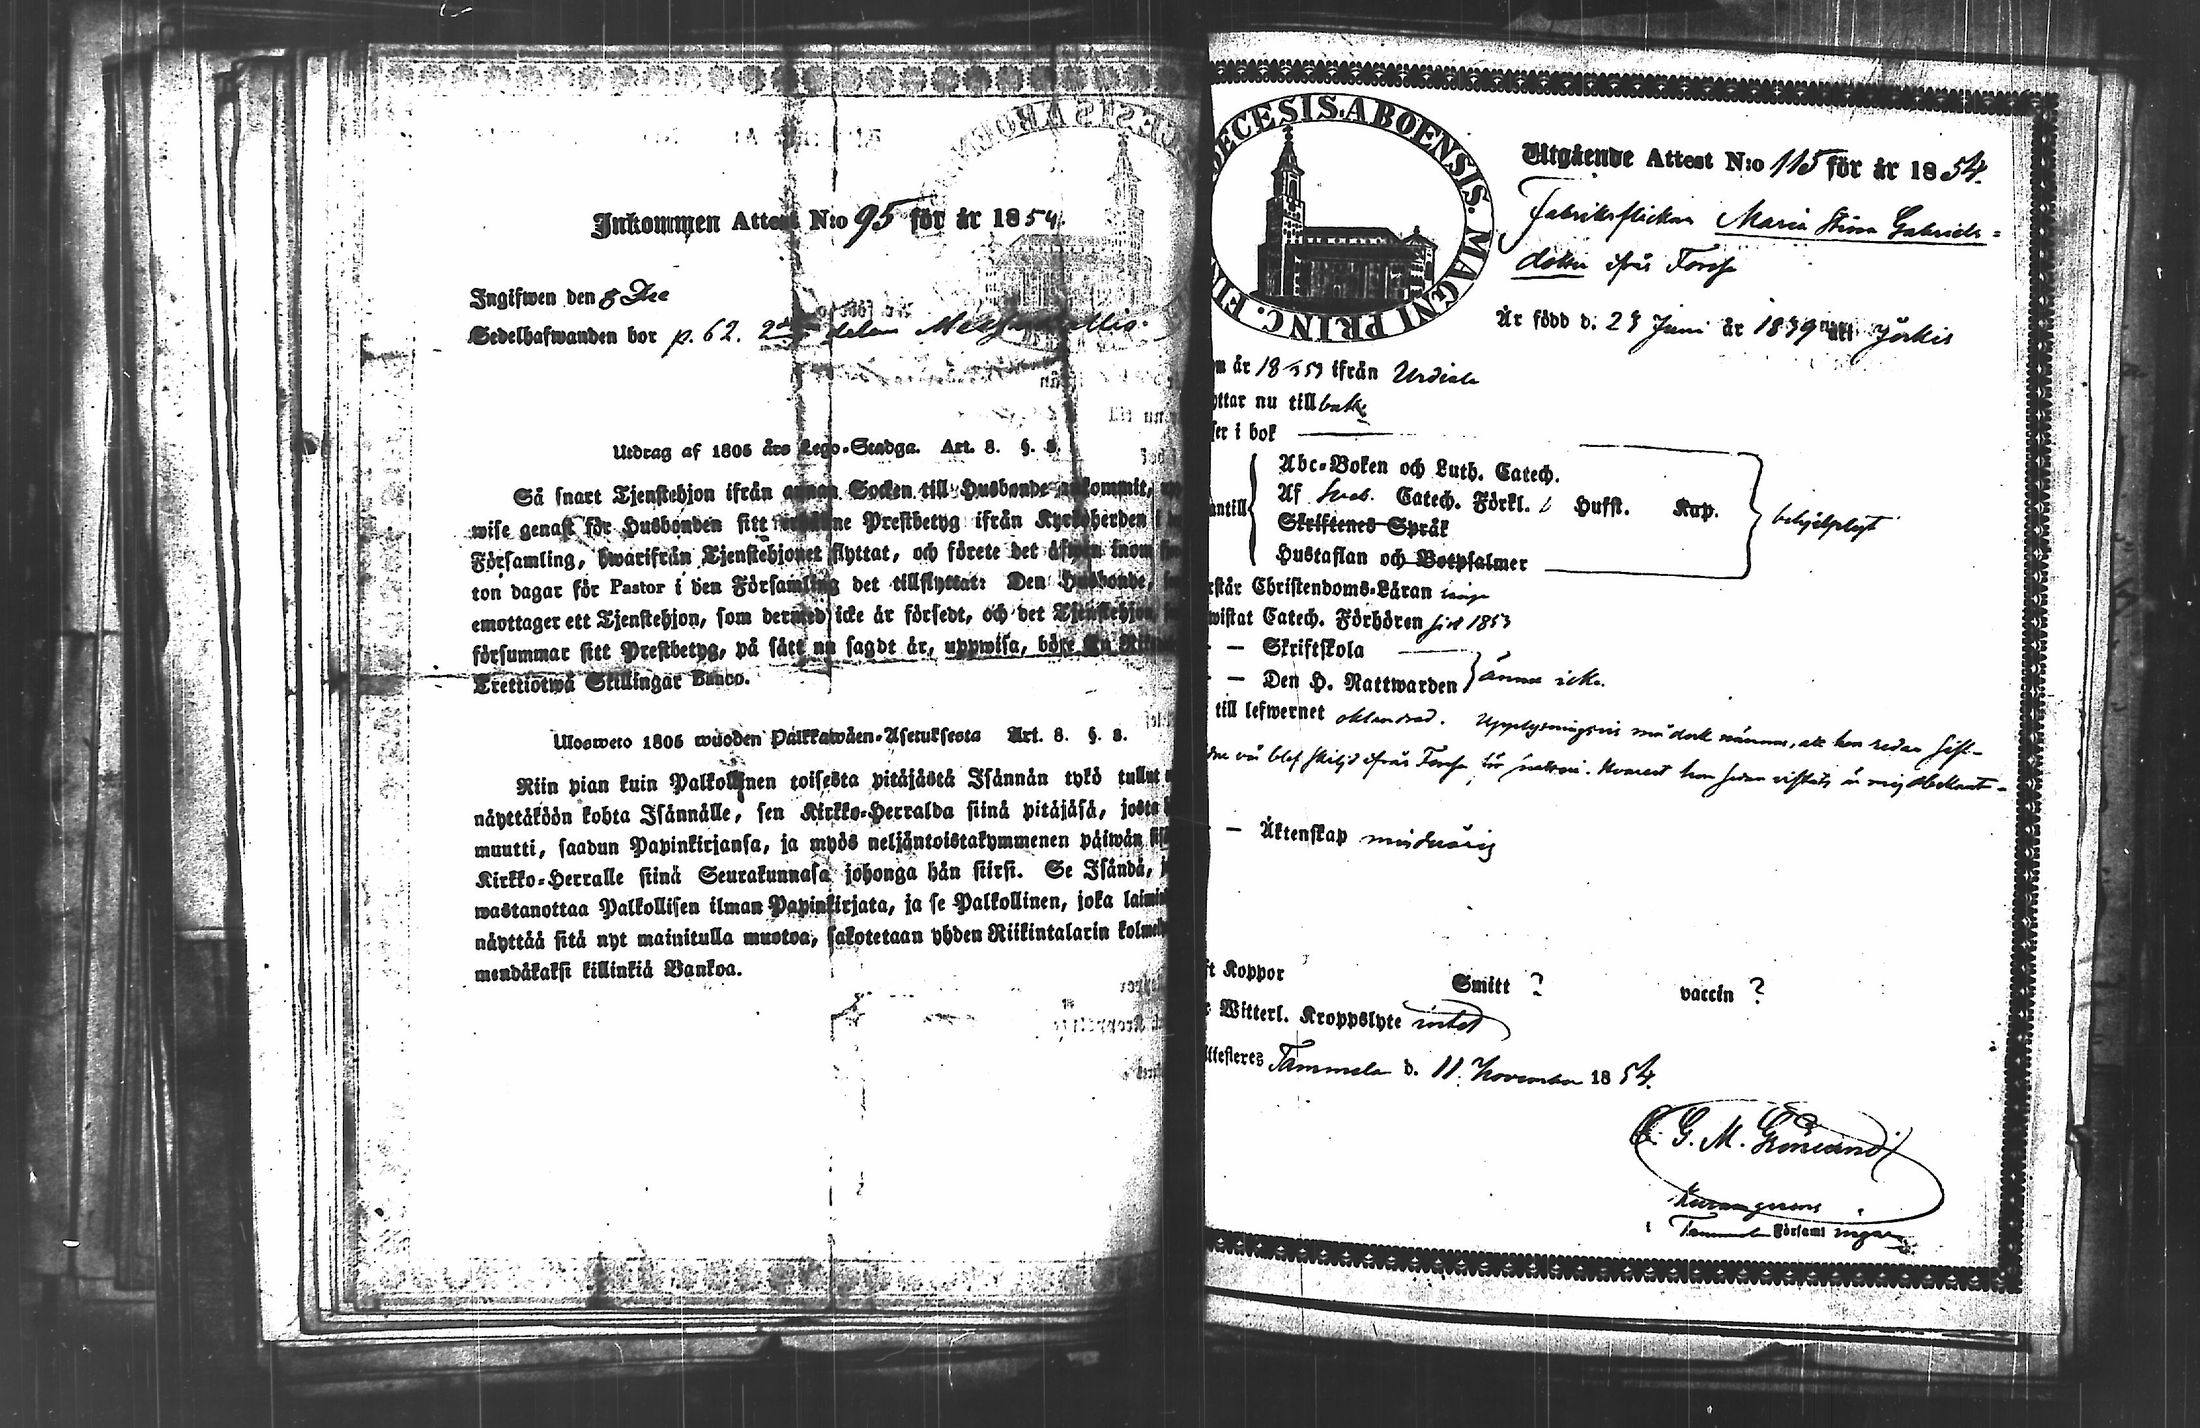 Inkommen Attest N:o 95 för år 1854.
Ingifwen den 8 Dec
Sedelhafwanden bor p. 62. 2 delen
Utdrag af 1805 års Lego-Stadga. Art. 8. §. 8.
Så snart Tjenstehjon ifrån annan Socken till Husbonde ankommit,
wise genast för Husbonden sitt Prestbetyg ifrån Kyrkoherden i
Församling, hwarifrån Tjenstehjonet flyttat, och förete det äfwen inom
ton dagar för Pastor i den Församling det tillflyttat: Den Husbonde,
emottager ett Tjenstehjon, som dermed icke är försedt, och det Tjenstehjon
försummar sitt Prestbetyg, på sätt nu sagdt är, uppwisa, böte En
Trettiotwå Skillingar Banco.
Ulosweto 1805 wuoden Palkkawäen-Asetuksesta Art. 8. §. 8.
Niin pian kuin Palkollinen toisesta pitäjästä Isännän tykö tullut
näyttäköön kohta Isännälle, sen Kirkko-Herralda siinä pitäjäsä, josta
muutti, saadun Papinkirjansa, ja myös neljäntoistakymmenen päiwän
Kirkko-Herralle siinä Seurakunnasa johonga hän siirsi. Se Isändä,
wastanottaa Palkollisen ilman Papinkirjata, ja se Palkollinen, joka
näyttää sitä nyt mainitulla muotoa, sakotetaan yhden Riikintalarin
mendäkaksi killinkiä Bankoa.
DECESIS. ABOENSIS. MAGNI PRINC. FI
Utgående Attest N:o 115 för år 1854.
Fabriksflickan Maria Stina Gabriels-
dotter ifrån Forssa
Är född d. 23 Juni år 1839 uti Jörkis
m år 1853 ifrån Urdiala
yttar nu tillbaka
ser i bok
Abc-Boken och Luth. Catech.
antill Af Sveb. Catech. Förkl. Husst. Kap. behjelpligt
Skriftenes Språk
Hustaflan och Botpsalmer
rstår Christendoms-Läran
wistat Catech. Förhören sist 1853
— Skriftskola
— Den H. Nattwarden ännu icke.
till lefwernet oklandrad. Upplysningsvis må dock nämnas, att hon redan
vår blef skiljd ifrån Forssa för snatteri. Hvarest hon sedan vistats är mig obekant
— Äktenskap minderårig
ft Koppor Smitt ? vaccin ?
Witterl. Kroppslyte intet
ttesteres Tammela d. 11 November 1854.
G. M.
i Tammela Församl ingar